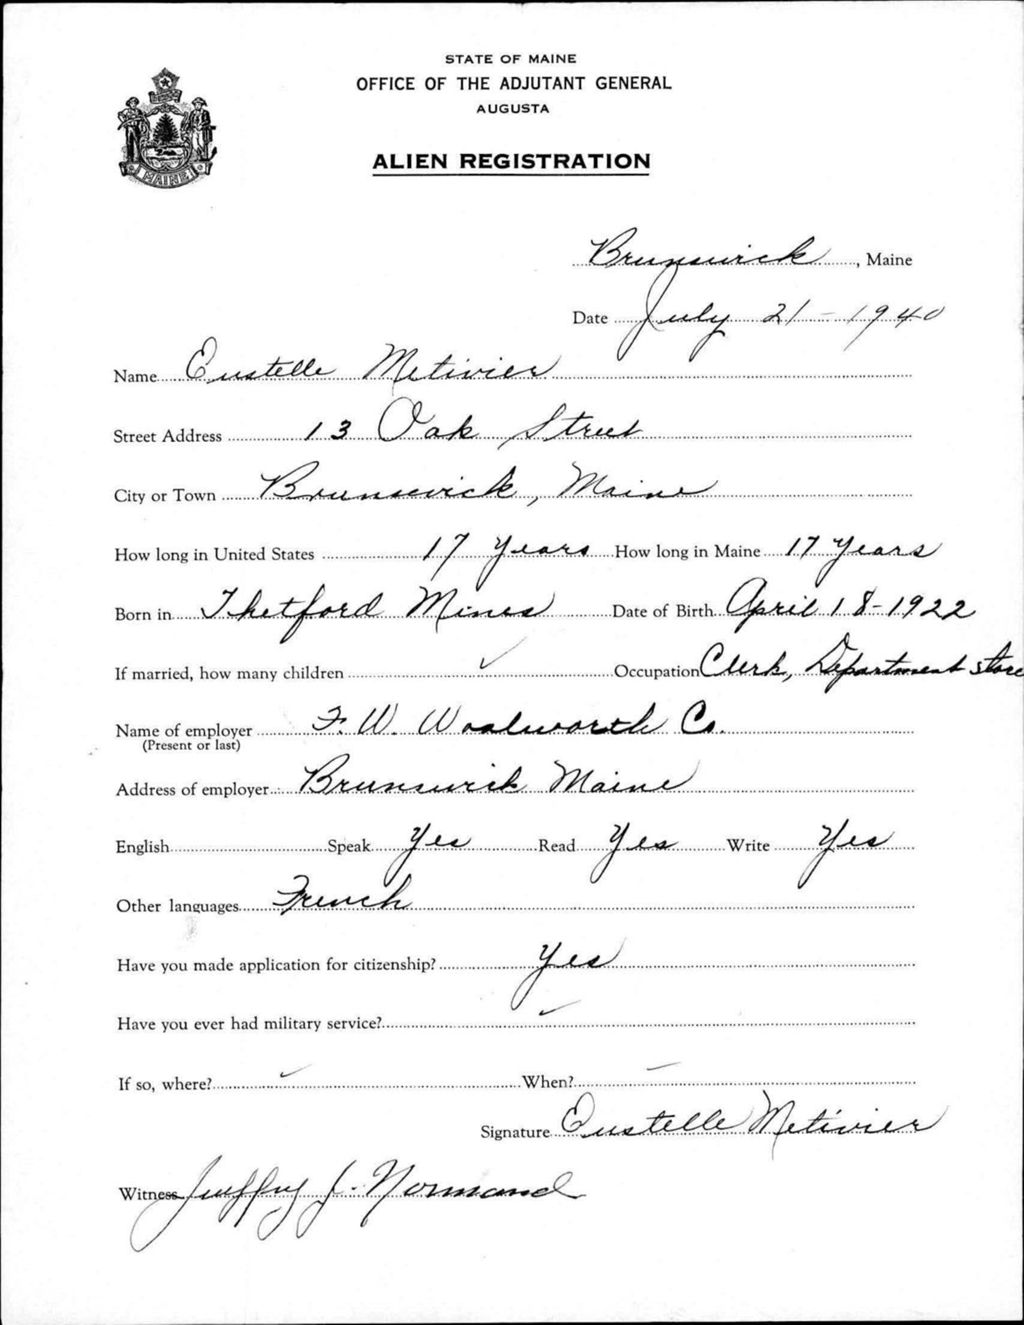 STATE OF MAINE
OFFICE OF THE ADJUTANT GENERAL
AUGUSTA
ALIEN REGISTRATION
MAINE
Brunswick, Maine
Date July 21 - 1940
Name Eustelle Metivier
Street Address 13 Oak Street
City or Town Brunswick, Maine
How long in United States 17 Years How long in Maine 17 Years
Born in Thetford Mines Date of Birth April 18-1922
If married, how many children Occupation Clerk, Department Store
Name of employer F. W. Woolworth Co.
(Present or last)
Address of employer Brunswick Maine
English Speak Yes Read Yes Write Yes
Other languages French
Have you made application for citizenship? Yes
Have you ever had military service?
If so, where? When?
Signature Eustelle Metivier
Witness J. Normand